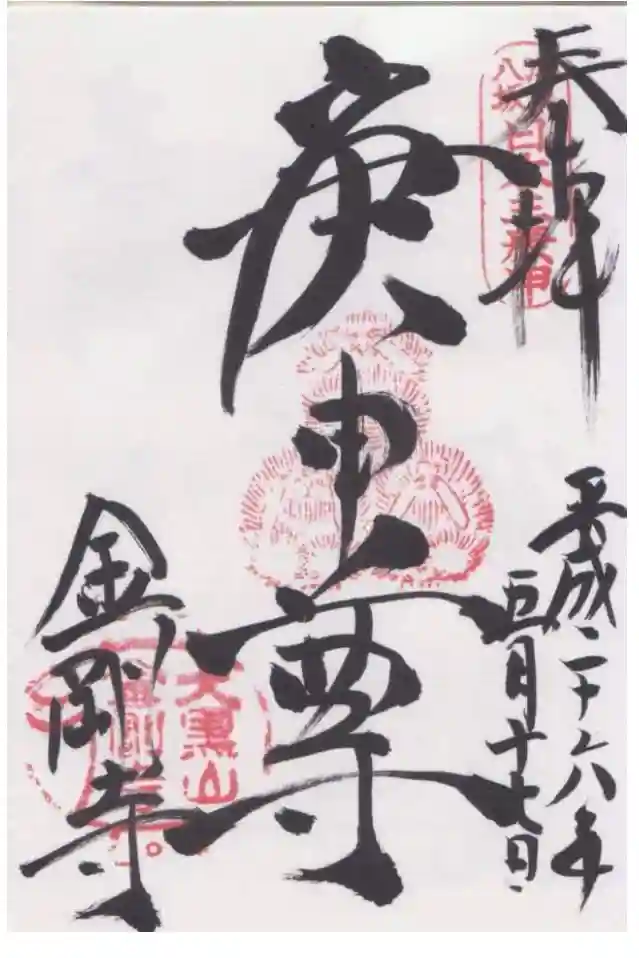 奉拝
八坂
日本三庚申
平成二十六年
月十七日
庚申尊
大黒山
金剛寺
金剛寺